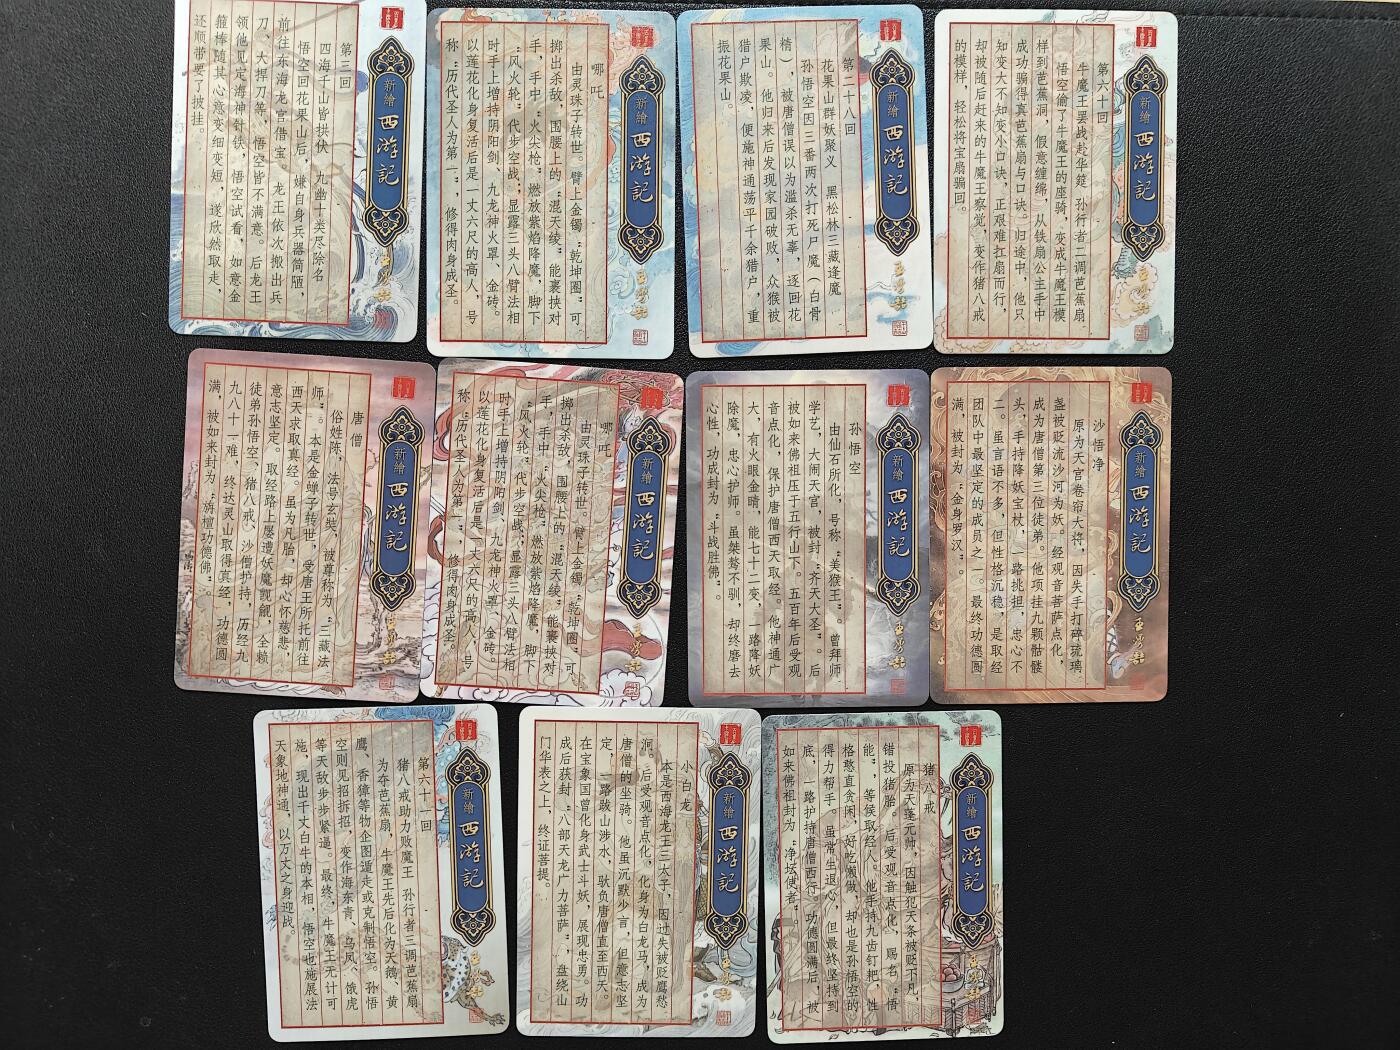 新繪西游記
第三回
四海千山皆拱伏　九幽十类尽除名
悟空回花果山后，嫌自身兵器简陋，
前往东海龙宫借宝。龙王依次搬出兵
刀、大捍刀等，悟空皆不满意。后龙王
领他见定海神针铁，悟空试看，如意金
箍棒随其心意变细变短，遂欣然取走，
还顺带要了披挂。
新繪西游記
哪吒
由灵珠子转世。臂上金镯“乾坤圈”可
掷出杀敌，围腰上的“混天绫”能裹挟对
手，手中“火尖枪”燃放紫焰降魔，脚下
“风火轮”代步空战，显露三头八臂法相
时手上增持阴阳剑、九龙神火罩、金砖。
以莲花化身复活后是一丈六尺的高人，号
称“历代圣人为第一”，修得肉身成圣。
新繪西游記
第二十八回
花果山群妖聚义　黑松林三藏逢魔
孙悟空因三番两次打死尸魔（白骨
精），被唐僧误以为滥杀无辜，逐回花
果山。他归来后发现家园破败，众猴被
猎户欺凌，便施神通荡平千余猎户，重
振花果山。
新繪西游記
第六十回
牛魔王罢战赴华筵　孙行者二调芭蕉扇
悟空偷了牛魔王的座骑，变成牛魔王模
样到芭蕉洞，假意缠绵，从铁扇公主手中
成功骗得真芭蕉扇与口诀。归途中，他只
知变大不知变小口诀，正艰难扛扇而行，
却被随后赶来的牛魔王察觉，变作猪八戒
的模样，轻松将宝扇骗回。
新繪西游記
唐僧
俗姓陈，法号玄奘，被尊称为“三藏法
师”。本是金蝉子转世，受唐王所托前往
西天求取真经。虽为凡胎，却心怀慈悲，
意志坚定。取经路上屡遭妖魔觊觎，全赖
徒弟孙悟空、猪八戒、沙僧护持，历经九
九八十一难，终达灵山取得真经，功德圆
满，被如来封为“旃檀功德佛”。
新繪西游記
哪吒
由灵珠子转世。臂上金镯“乾坤圈”可
掷出杀敌，围腰上的“混天绫”能裹挟对
手，手中“火尖枪”燃放紫焰降魔，脚下
“风火轮”代步空战，显露三头八臂法相
时手上增持阴阳剑、九龙神火罩、金砖。
以莲花化身复活后是一丈六尺的高人，号
称“历代圣人为第一”，修得肉身成圣。
新繪西游記
孙悟空
由仙石所化，号称“美猴王”。曾拜师
学艺，大闹天宫，被封“齐天大圣”。后
被如来佛祖压于五行山下。五百年后受观
音点化，保护唐僧西天取经。他神通广
大，有火眼金睛，能七十二变，一路降妖
除魔，忠心护师。虽桀骜不驯，却终磨去
心性，功成封为“斗战胜佛”。
新繪西游記
沙悟净
原为天宫卷帘大将，因失手打碎琉璃
盏被贬流沙河为妖。经观音菩萨点化，
成为唐僧第三位徒弟。他项挂九颗骷髅
头，手持降妖宝杖，一路挑担，忠心不
二。虽言语不多，但性格沉稳，是取经
团队中最坚定的成员之一。最终功德圆
满，被封为“金身罗汉”。
新繪西游記
第六十一回
猪八戒助力败魔王　孙行者三调芭蕉扇
为夺芭蕉扇，牛魔王先后化为天鹅、黄
鹰、香獐等物企图遁走或克制悟空。孙悟
空则见招拆招，变作海东青、乌凤、饿虎
等天敌步步紧逼。最终，牛魔王无计可
施，现出千丈白牛的本相，悟空也施展法
天象地神通，以万丈之身迎战。
新繪西游記
小白龙
本是西海龙王三太子，因过失被贬鹰愁
涧。后受观音点化，化身为白龙马，成为
唐僧的坐骑。他虽沉默少言，但意志坚
定，一路跋山涉水，驮负唐僧直至西天。
在宝象国曾化身武士斗妖，展现忠勇。功
成后获封“八部天龙广力菩萨”，盘绕山
门华表之上，终证菩提。
新繪西游記
猪八戒
原为天蓬元帅，因触犯天条被贬下凡，
错投猪胎。后受观音点化，赐名“悟
能”，等候取经人。他手持九齿钉耙，性
格憨直贪闲，好吃懒做，却也是孙悟空的
得力帮手。虽常生退心，但最终坚持到
底，一路护持唐僧西行。功德圆满后，被
如来佛祖封为“净坛使者”。